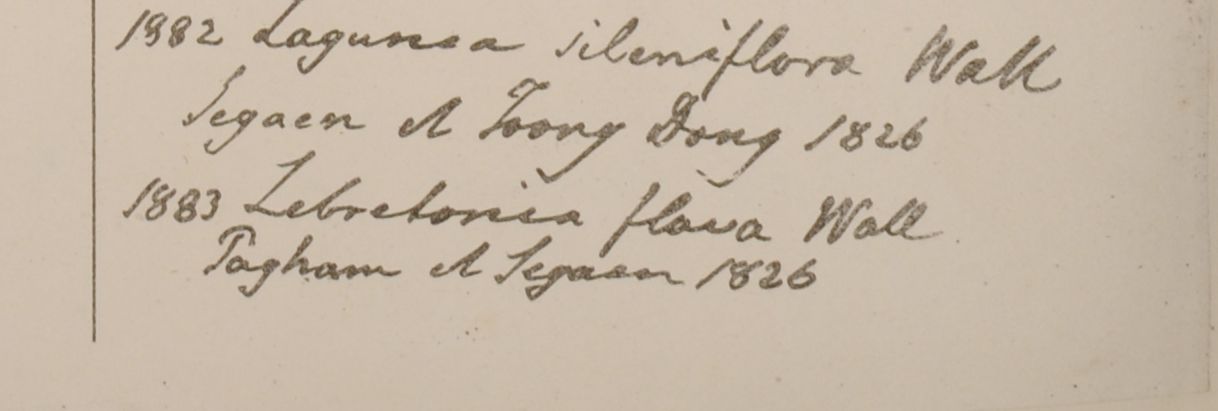 1982 Lagunea sileniflora Wall
Segaen et Toong Dong 1826
1883 Lebretonia flava Wall
Pagham et Segaen 1826